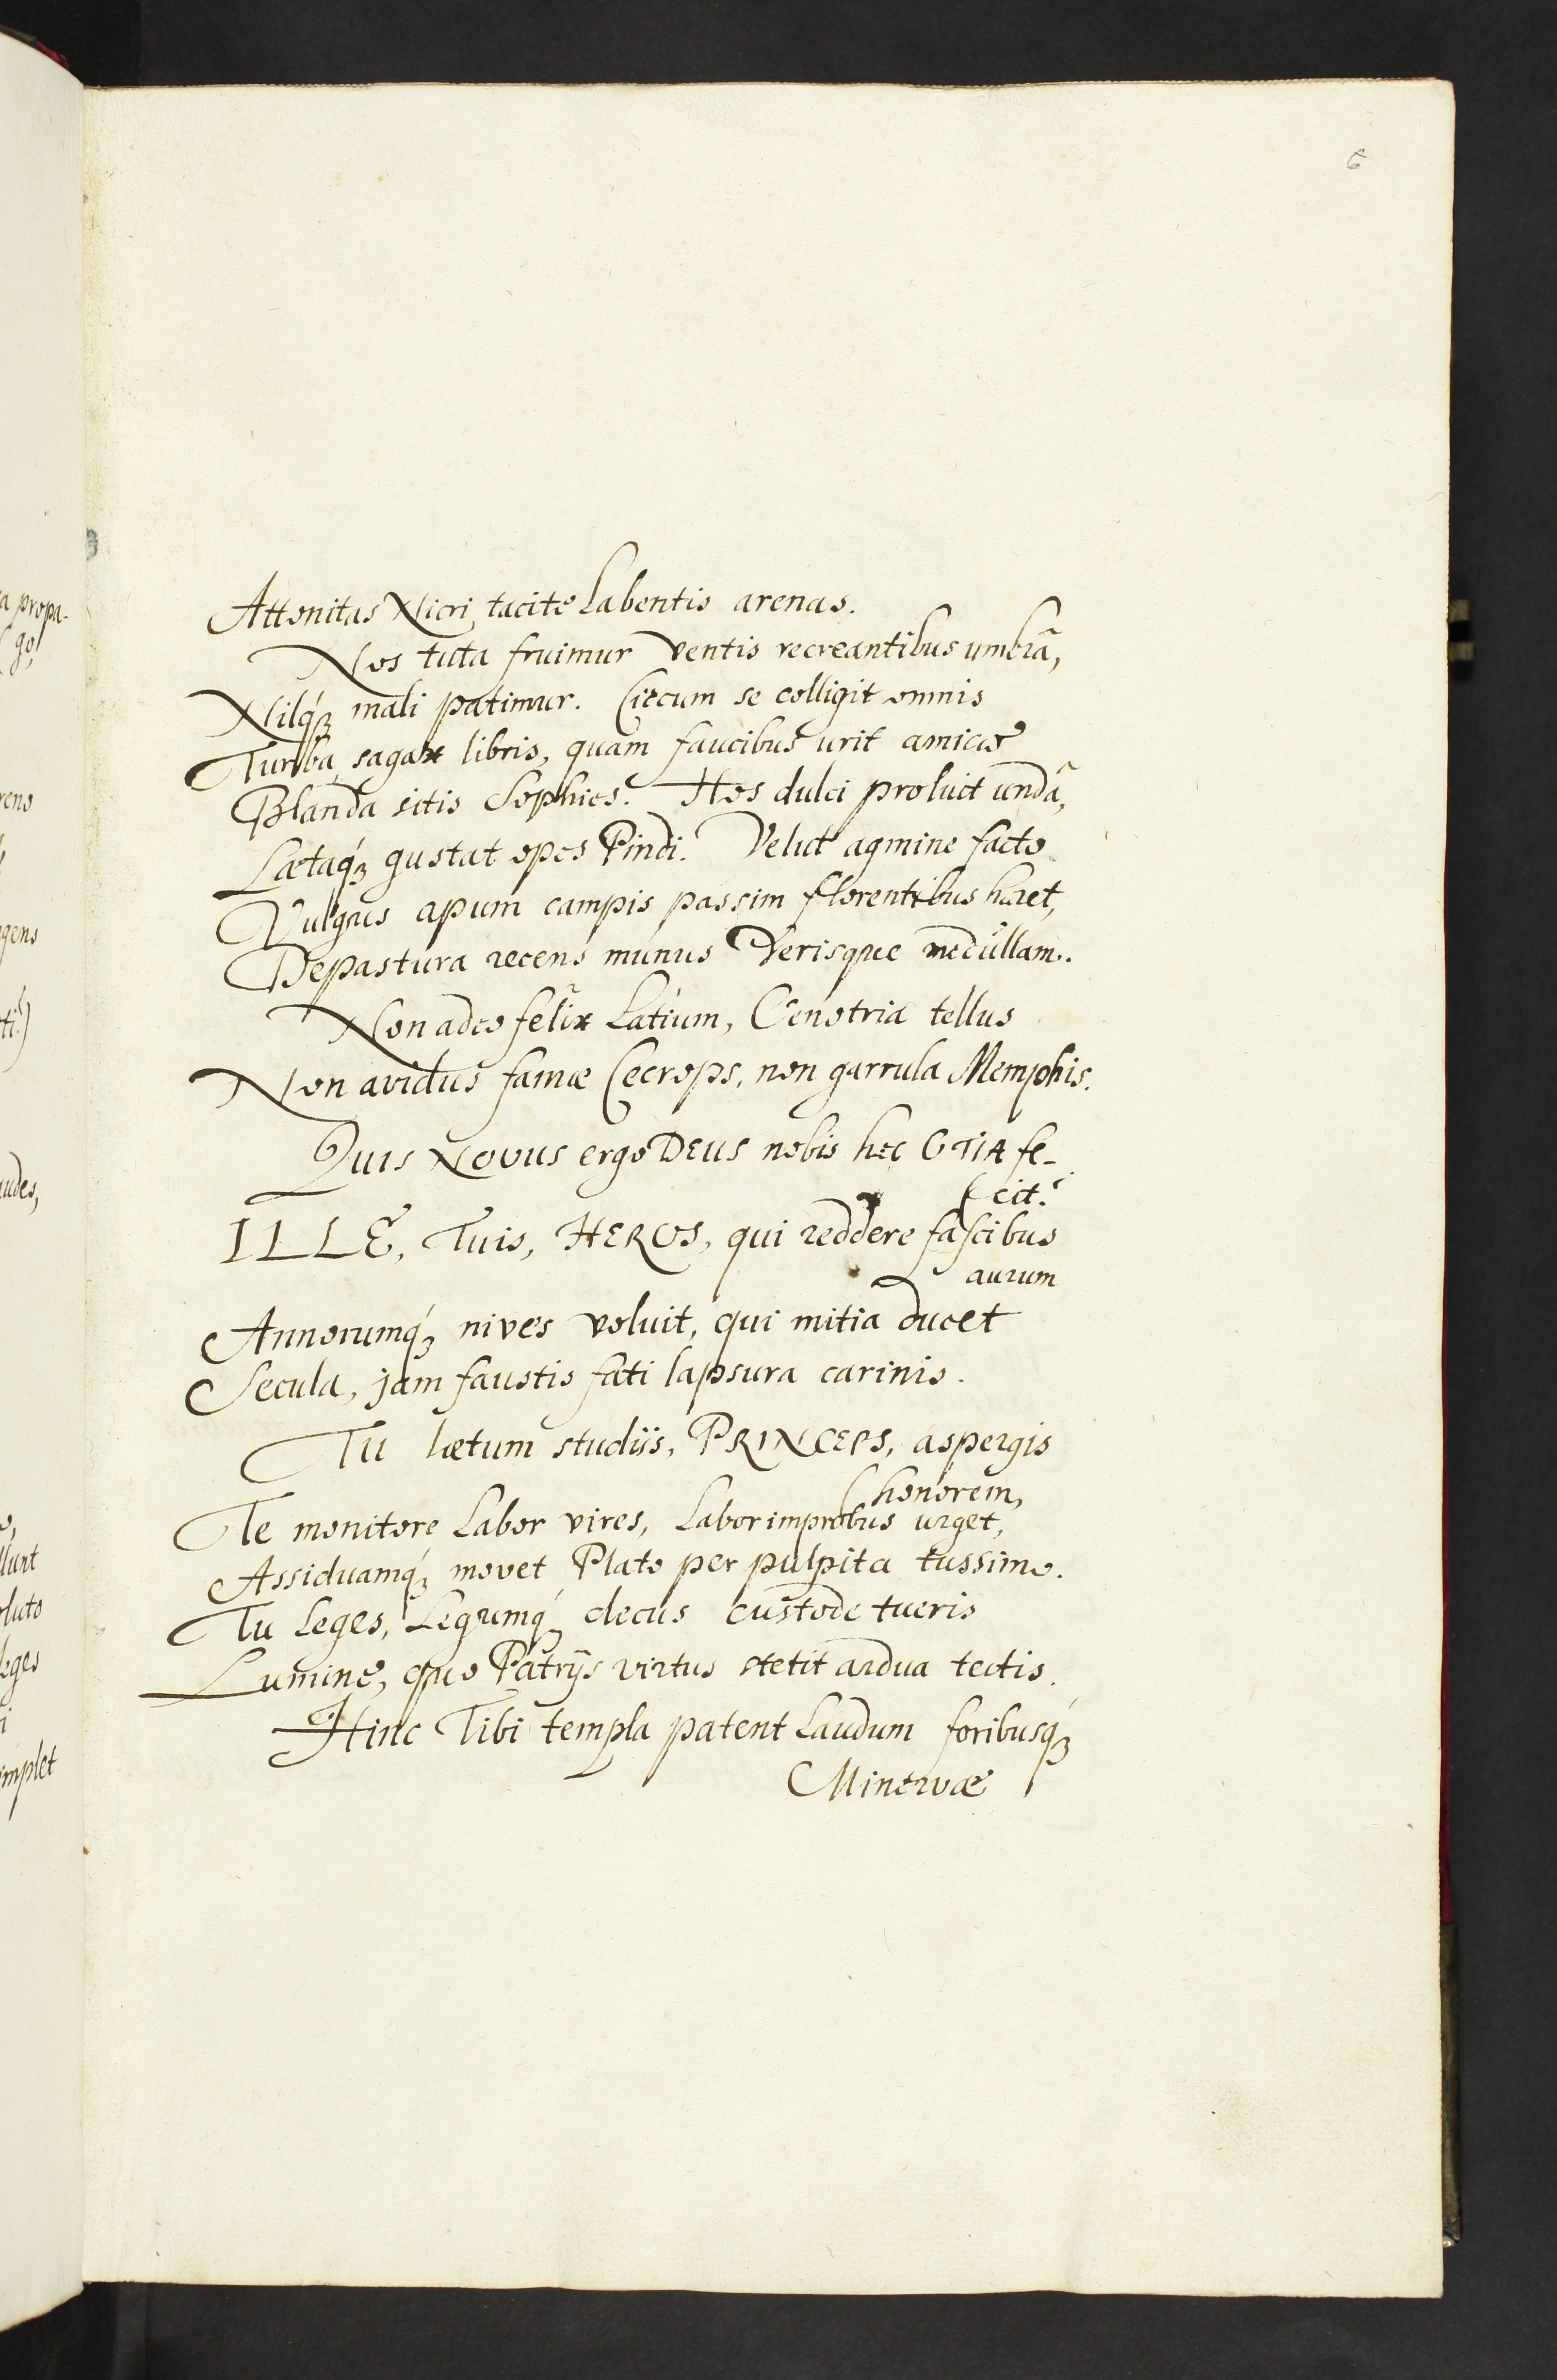 6
Attonitas Nicri, tacite labentis arenas.
Nos tuta fruimur ventis recreantibus umbrâ,
Nilq́ꝫ mali patimur. Circum se colligit omnis
Turba sagax libris, quam faucibus urit amicis
Blanda sitis Sophies. Hos dulci proluit undâ,
Lætaq́ꝫ gustat opes Pindi. Velut agmine facto
Vulgus apum campis passim florentibus hæret,
Depastura recens munus Verisque medullam.
Non adeo felix Latium, Oenotria tellus
Non avidus famæ Cecrops, non garrula Memphis.
Quis Novus ergo DEUS nobis hæc OTIA fe-
(cit?
ILLE, Tuis, HEROS, qui reddere fascibus
aurum
Annorumq́ꝫ nives voluit, qui mitia ducet
Secula, jam faustis fati lapsura carinis.
Tu lætum studiis, PRINCEPS, aspergis
(honorem,
Te monitore labor vires, labor improbus urget,
Assiduamq́ꝫ movet Plato per pulpita tussim.
Tu leges, legumq́ꝫ decus custode tueris
Lumine, quo Patrijs virtus stetit ardua tectis.
Hinc Tibi templa patent laudum foribusq́ꝫ
Minervæ
a propa-
(go,
rens
gens
ti?)
udes,
llunt
luto
leges
implet